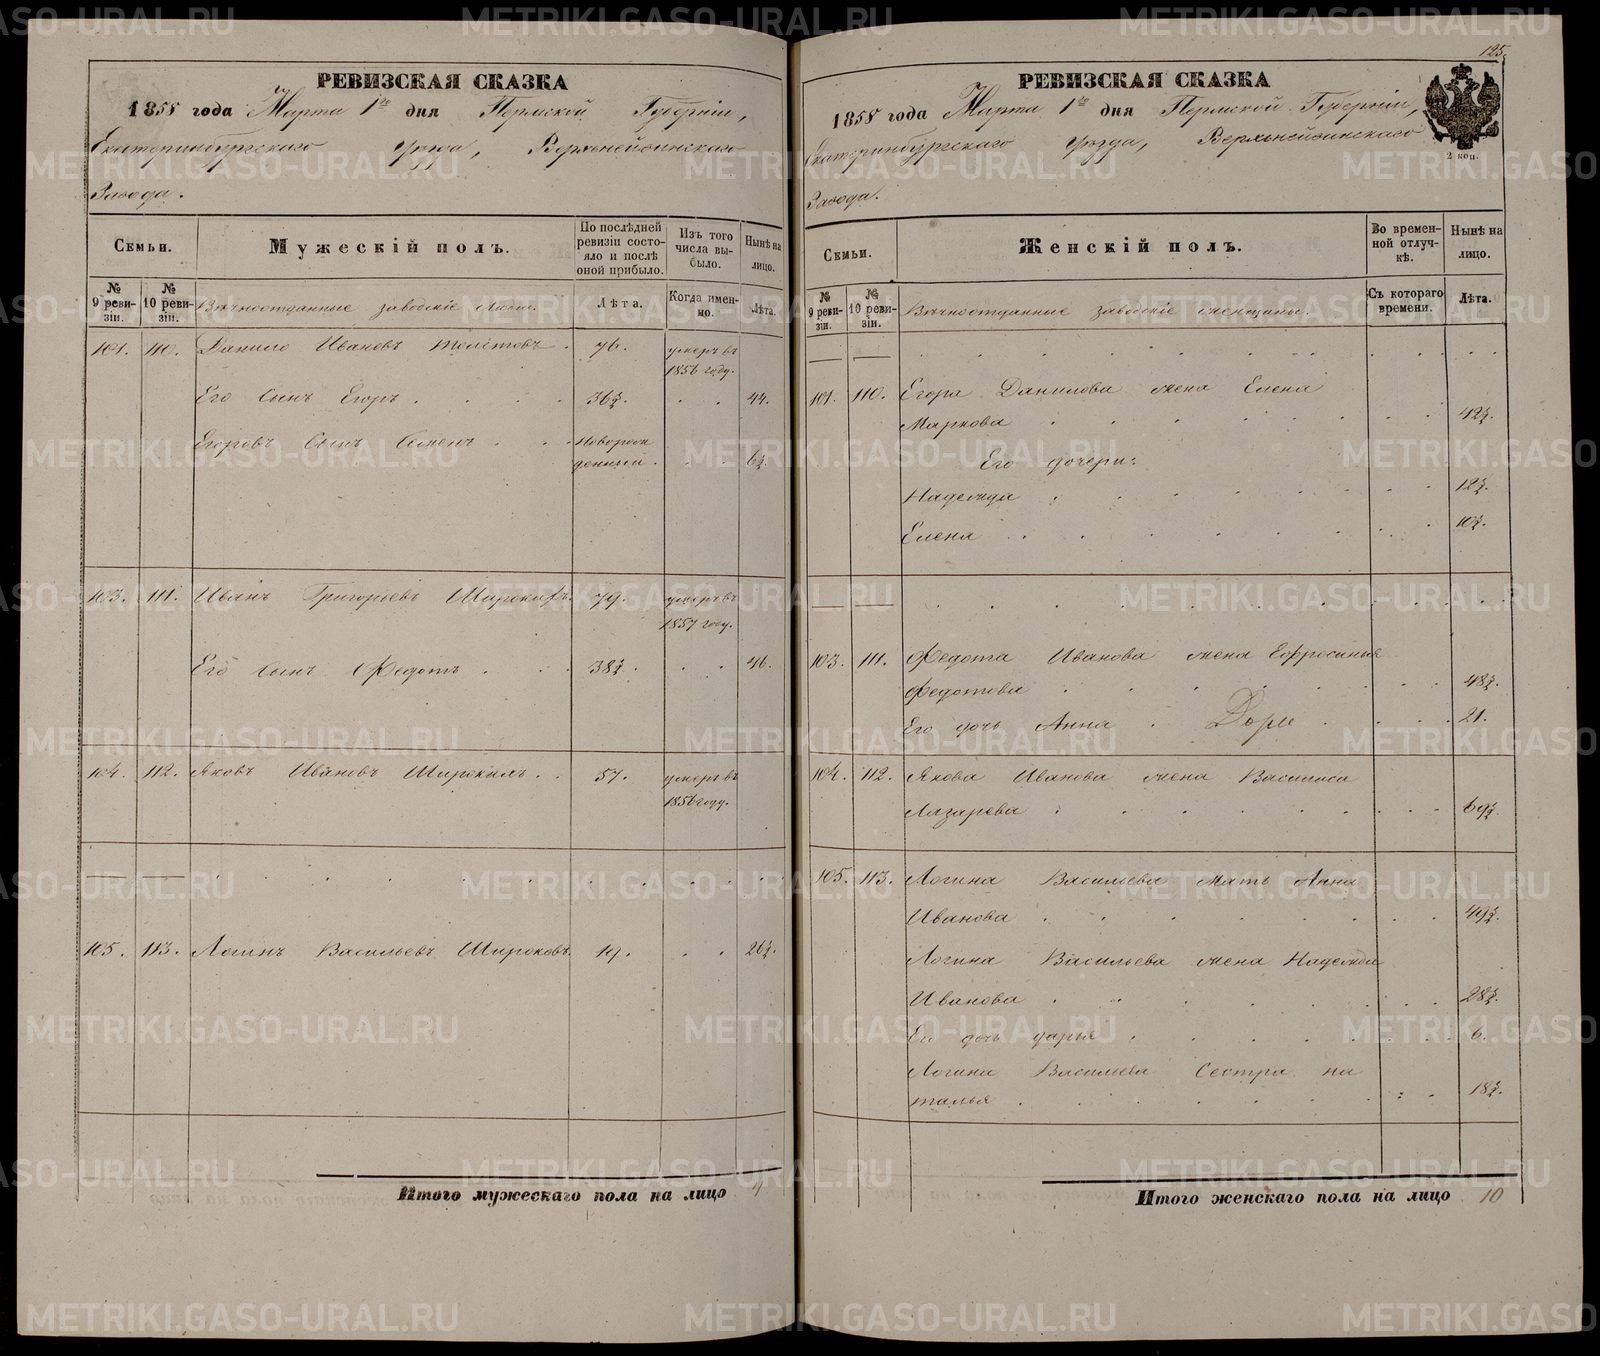 РЕВИЗСКАЯ СКАЗКА
1858 года Марта 1го дня Пермской Губерніи,
Екатеринбургскаго уѣзда, Верхнейвинскаго
Завода.
Семьи.
Мужескій полъ.
По послѣдней ревизіи состояло и послѣ оной прибыло.
Изъ того числа выбыло.
Нынѣ на лицо.
№ 9 ревизіи.
№ 10 ревизіи.
Вѣчноотданные заводскіе люди.
Лѣта.
Когда именно.
Лѣта.
101. 110. Данило Ивановъ 76. умеръ въ
1856 году.
Его сынъ Егоръ . . . 36½. . . 44.
Егоровъ сынъ Семенъ . . Новорож
денный. . . 6½.
103. 111. Иванъ Григорьевъ Широковъ. 79. умеръ въ
1857 году.
Его сынъ Федотъ . . . 38½. . . 46.
104. 112. Яковъ Ивановъ Широковъ . . 57. умеръ въ
1856 году.
105. 113. Логинъ Васильевъ Широковъ. 19. . . 26½.
Итого мужескаго пола на лицо 4
125.
РЕВИЗСКАЯ СКАЗКА
1858 года Марта 1го дня Пермской Губерніи,
Екатеринбургскаго уѣзда, Верхнейвинскаго
Завода.
2 коп.
Семьи.
Женскій полъ.
Во временной отлучкѣ.
Нынѣ на лицо.
№ 9 ревизіи.
№ 10 ревизіи.
Вѣчноотданные заводскіе женщины.
Съ котораго времени.
Лѣта.
101. 110. Егора Данилова жена Елена
Маркова . . . 42½.
Его дочери:
Надежда . . . 12½.
Елена . . . 10½.
103. 111. Федота Иванова жена Ефросинья
Федотова . . . 48½.
Его дочь Анна . . . 21.
104. 112. Якова Иванова жена Василиса
Лазарева . . . 69½.
105. 113. Логина Васильева мать Анна
Иванова . . . 49½.
Логина Васильева жена Надежда
Иванова . . . 28½.
Его дочь дарья . . . 6.
Логина Васильева Сестра на
талья . . . 18½.
Итого женскаго пола на лицо 10
METRIKI.GASO-URAL.RU